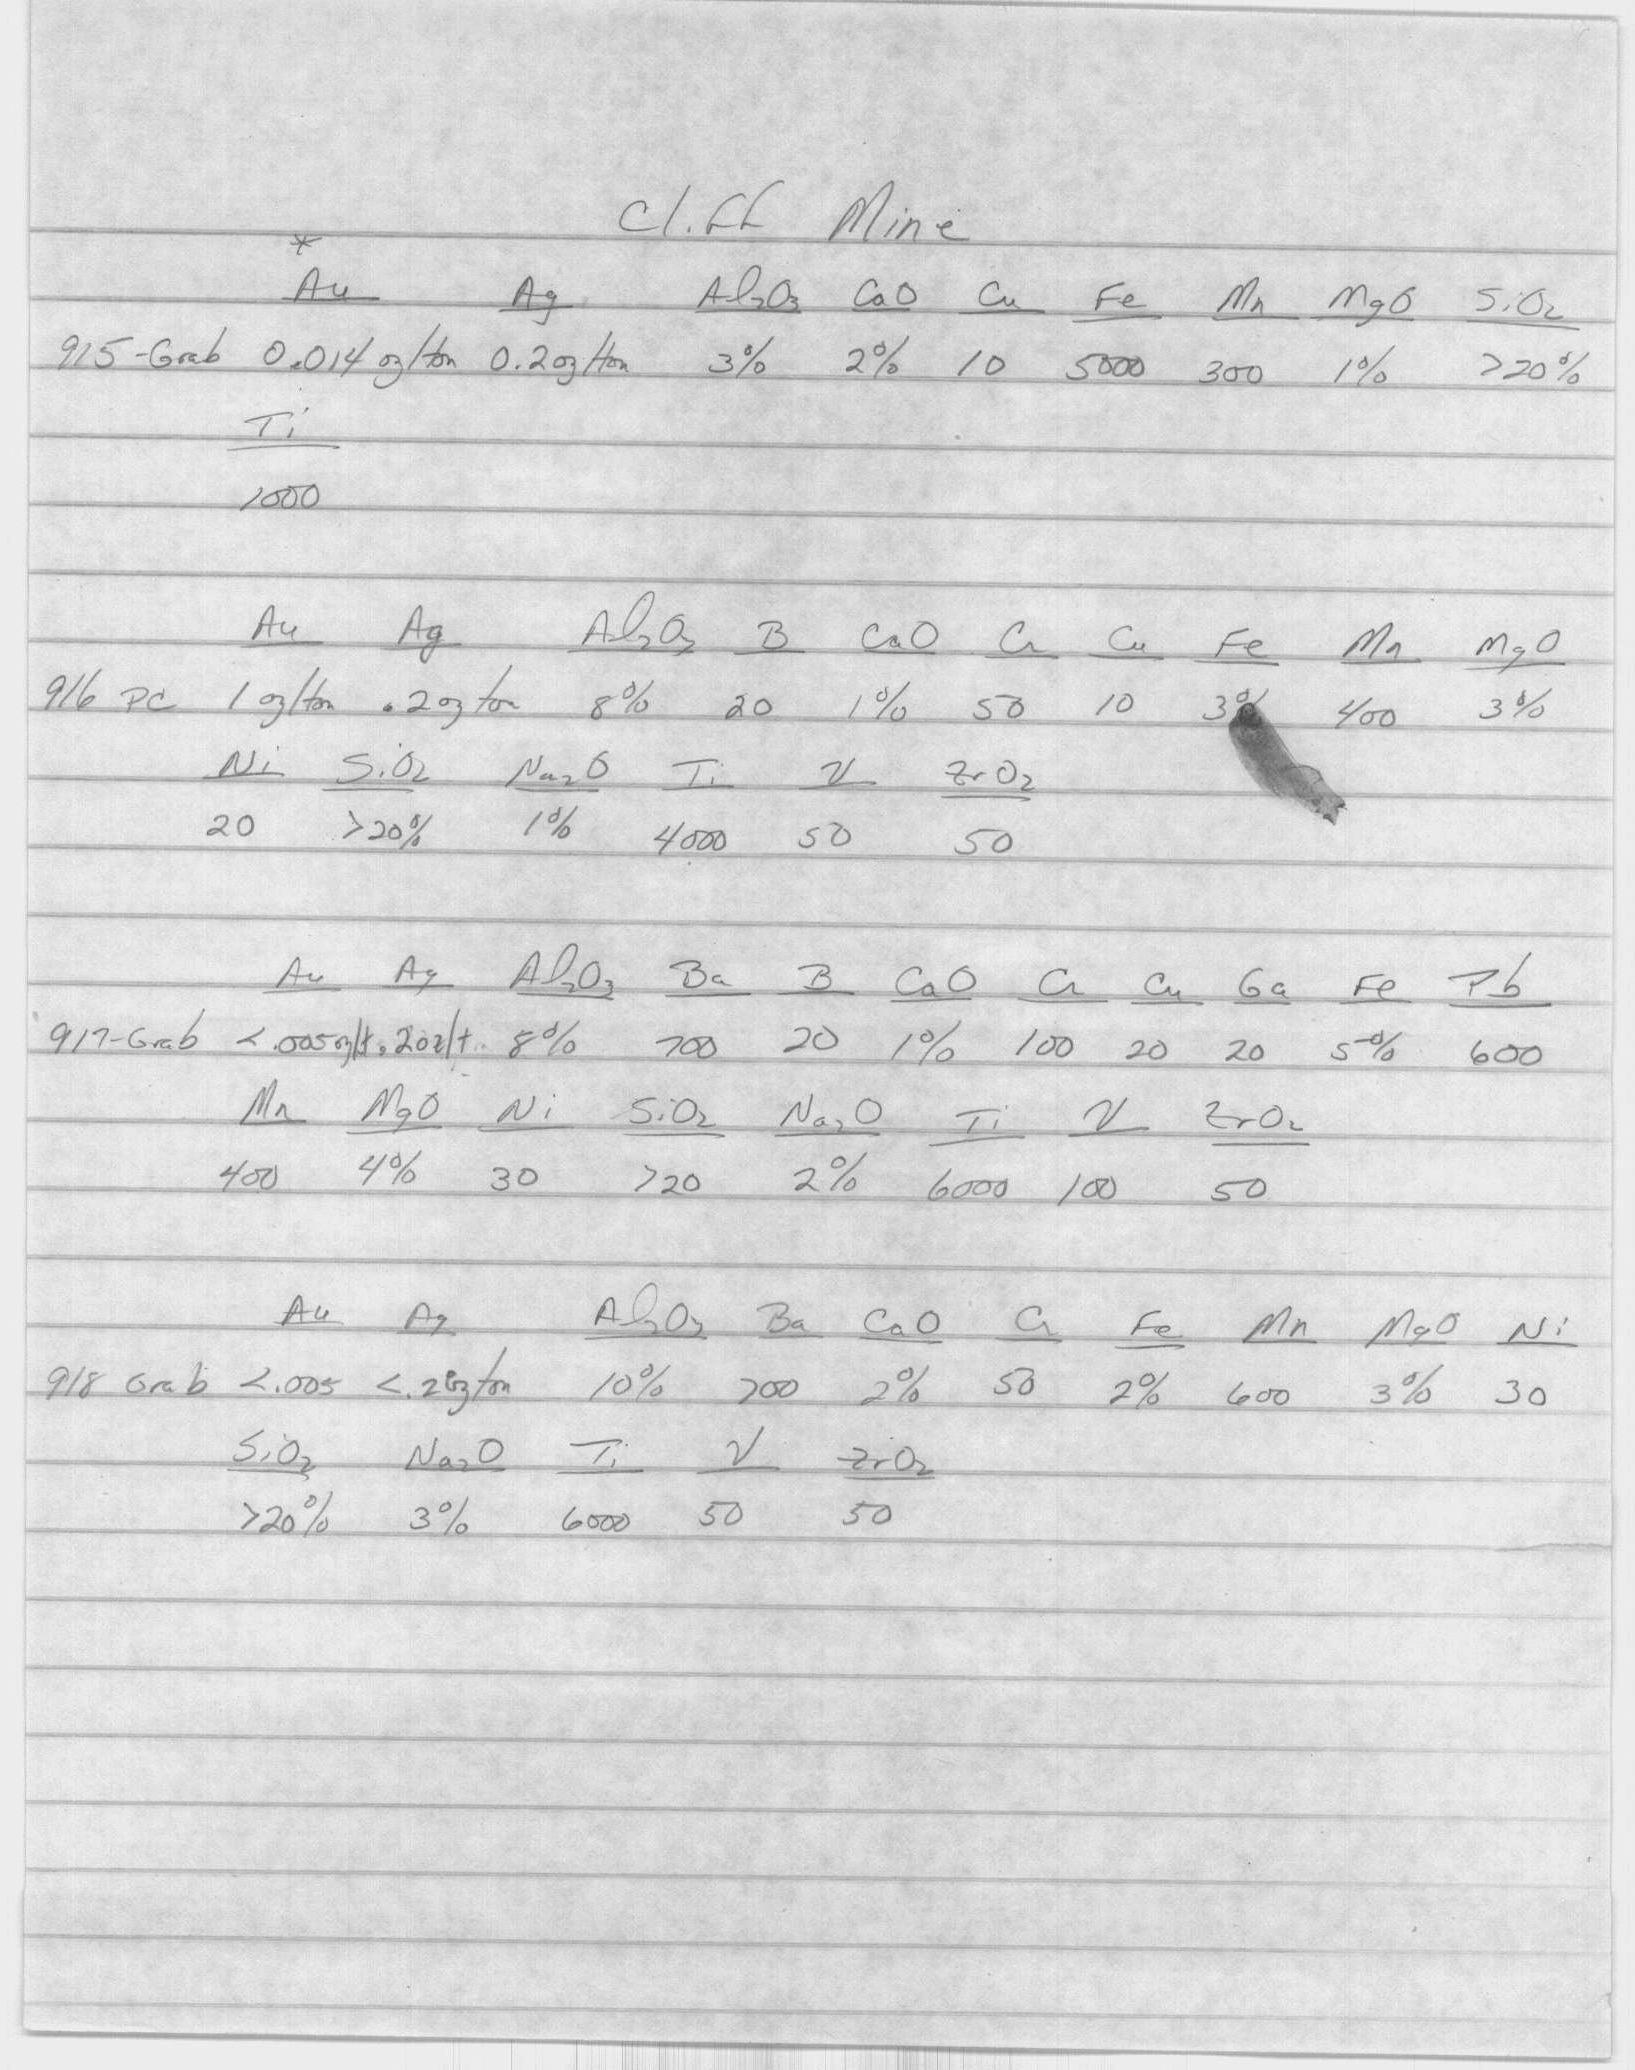 Cliff Mine
*
Au Ag Al2O3 CaO Cu Fe Mn MgO SiO2
915-Grab 0.014 oz/ton 0.2 oz/ton 3% 2% 10 5000 300 1% >20%
Ti
1000
Au Ag Al2O3 B CaO Cr Cu Fe Mn MgO
916 PC 1 oz/ton .2 oz ton 8% 20 1% 50 10 3% 400 3%
Ni SiO2 Na2O Ti V ZrO2
20 >20% 1% 4000 50 50
Au Ag Al2O3 Ba B CaO Cr Cu Ga Fe Pb
917-Grab <.005 oz/t .2 oz/t 8% 700 20 1% 100 20 20 5% 600
Mn MgO Ni SiO2 Na2O Ti V ZrO2
400 4% 30 >20 2% 6000 100 50
Au Ag Al2O3 Ba CaO Cr Fe Mn MgO Ni
918 Grab <.005 <.2 oz/ton 10% 700 2% 50 2% 600 3% 30
SiO2 Na2O Ti V ZrO2
>20% 3% 6000 50 50